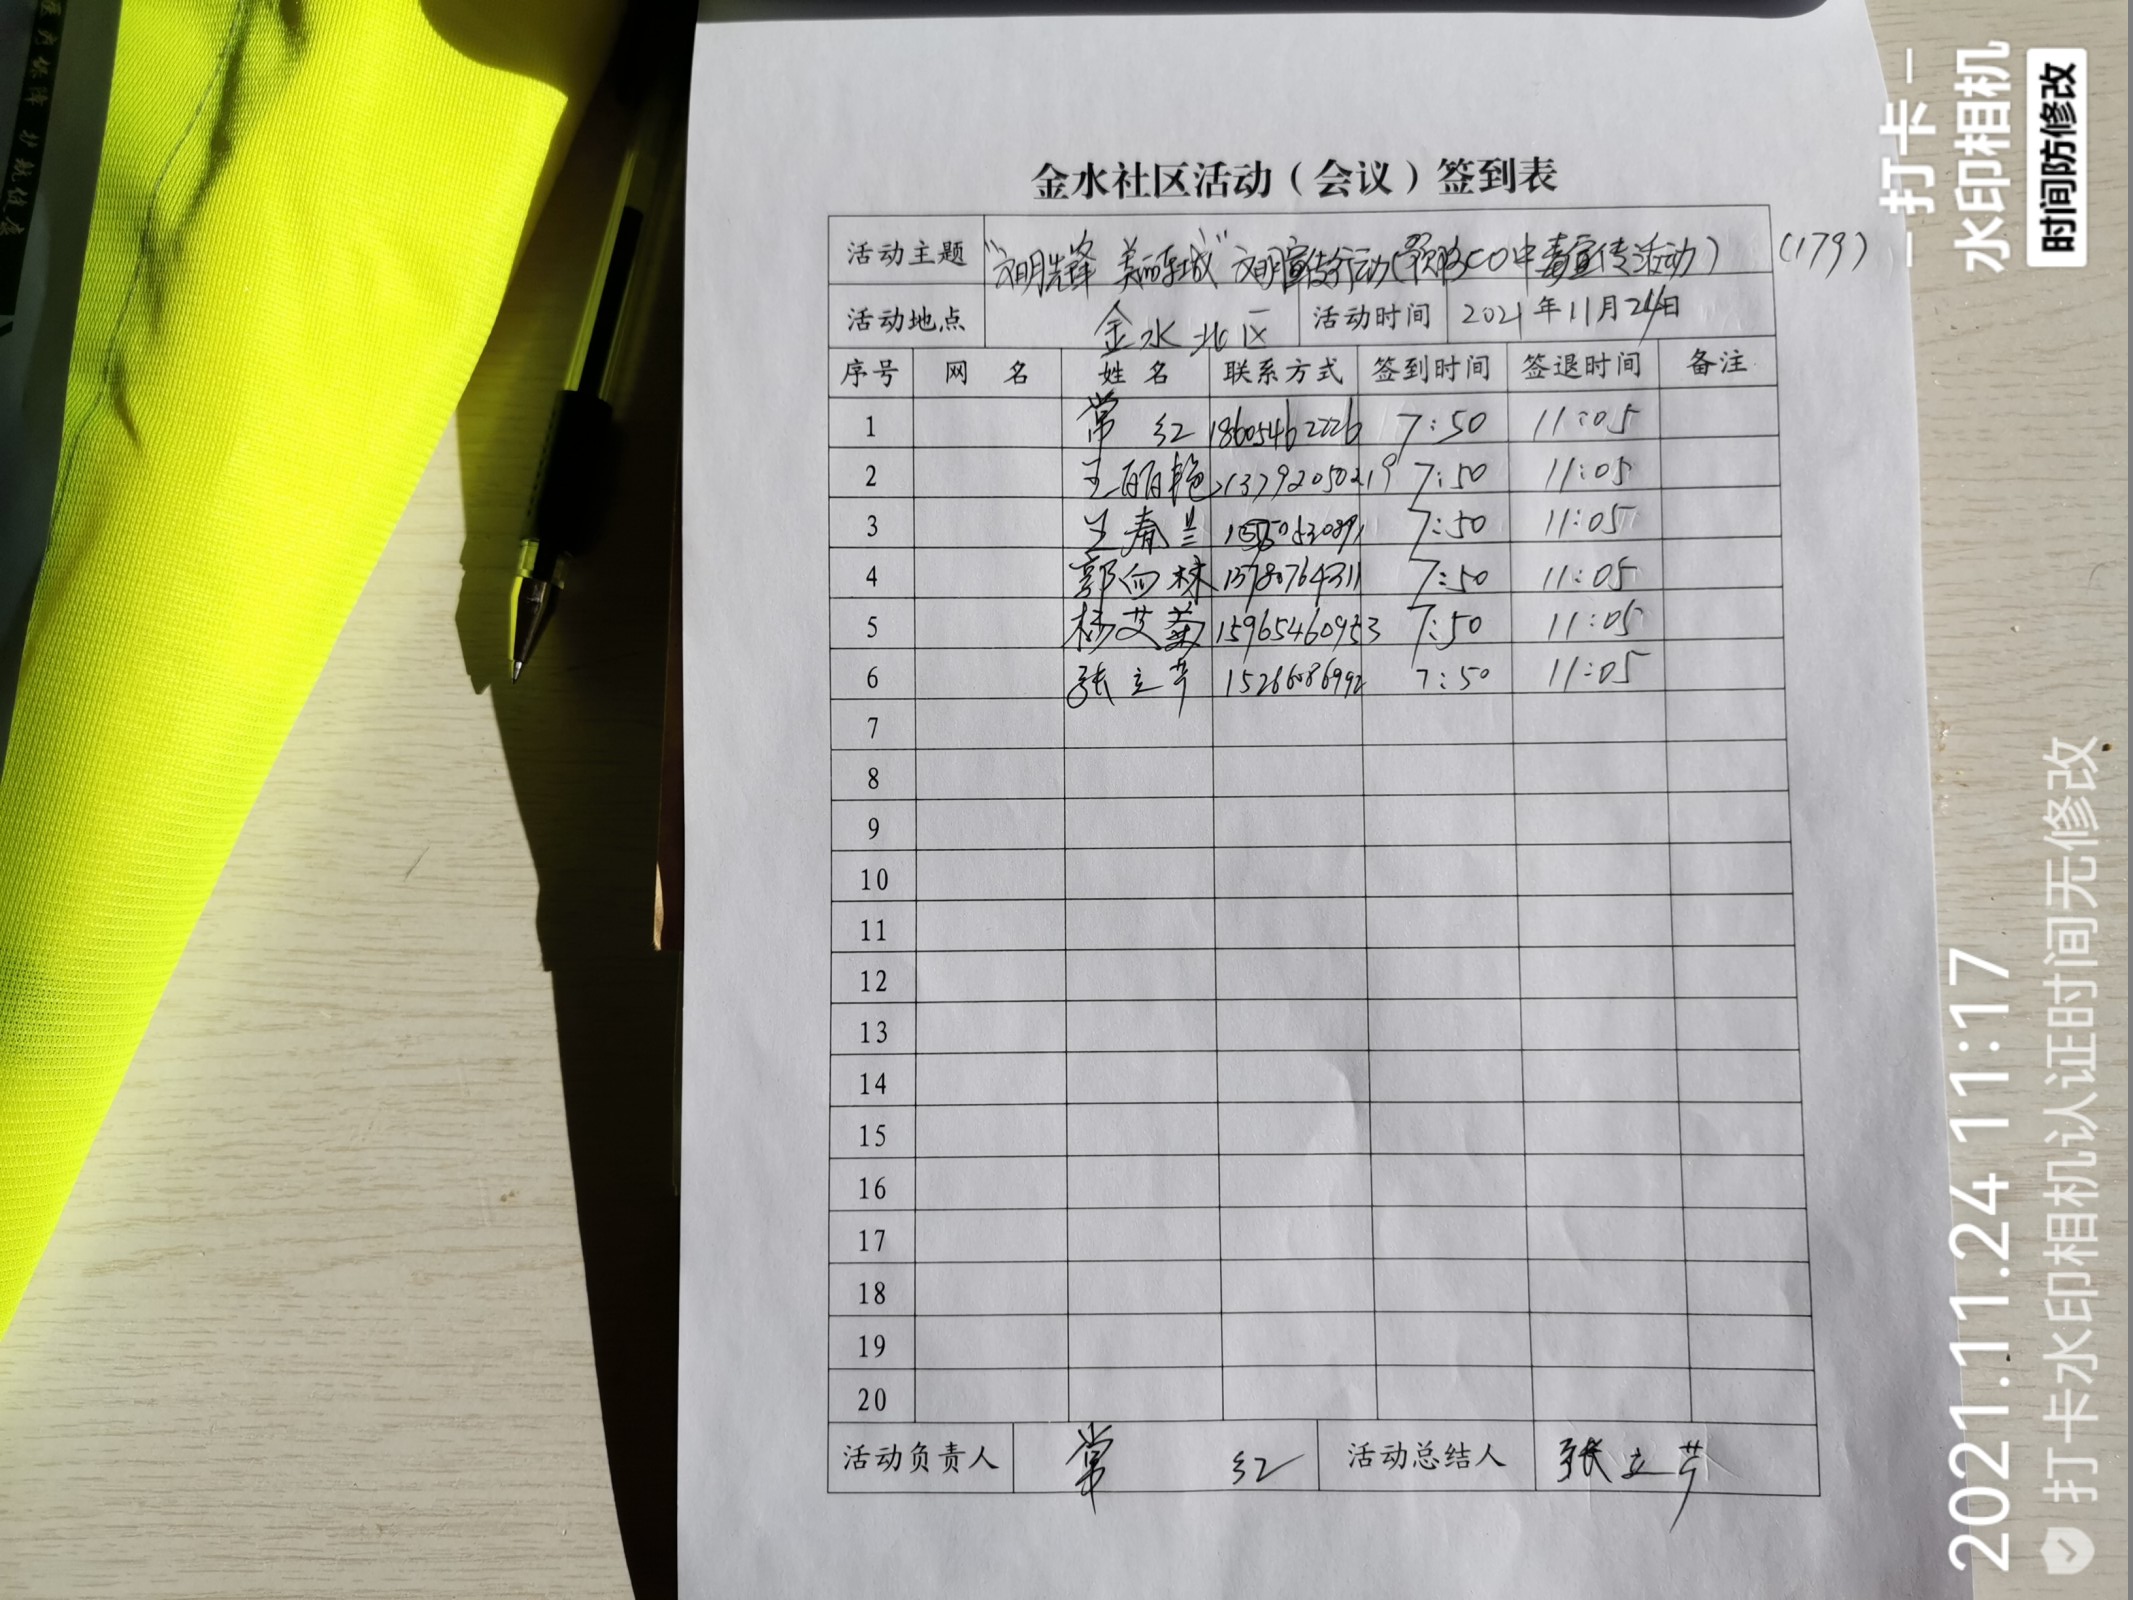 金水社区活动（会议）签到表
活动主题 "文明先锋 美丽东城"文明宣传行动(预防CO中毒宣传活动) (179)
活动地点 金水北区 活动时间 2021年11月24日
序号 网 名 姓 名 联系方式 签到时间 签退时间 备注
1 常 红 18605462226 7:50 11:05
2 王丽艳 13792050219 7:50 11:05
3 王春兰 7:50 11:05
4 郭向林 15780764311 7:50 11:05
5 杨艾英 15965460953 7:50 11:05
6 张立芹 15266086992 7:50 11:05
7
8
9
10
11
12
13
14
15
16
17
18
19
20
活动负责人 常 红 活动总结人 张立芹
-打卡-
水印相机
时间防修改
2021.11.24 11:17
打卡水印相机认证时间无修改